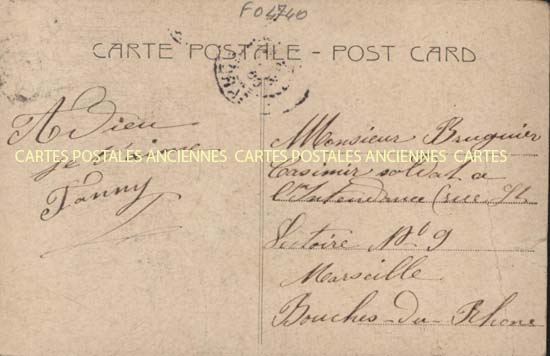 FO4740
CARTE POSTALE - POST CARD
A Dieu
Fanny
Monsieur Bruguier
Casimir soldat a
l'Intendance Rue St
Victoire No 9
Marseille
Bouches-du-Rhone
CARTES POSTALES ANCIENNES CARTES POSTALES ANCIENNES CARTES